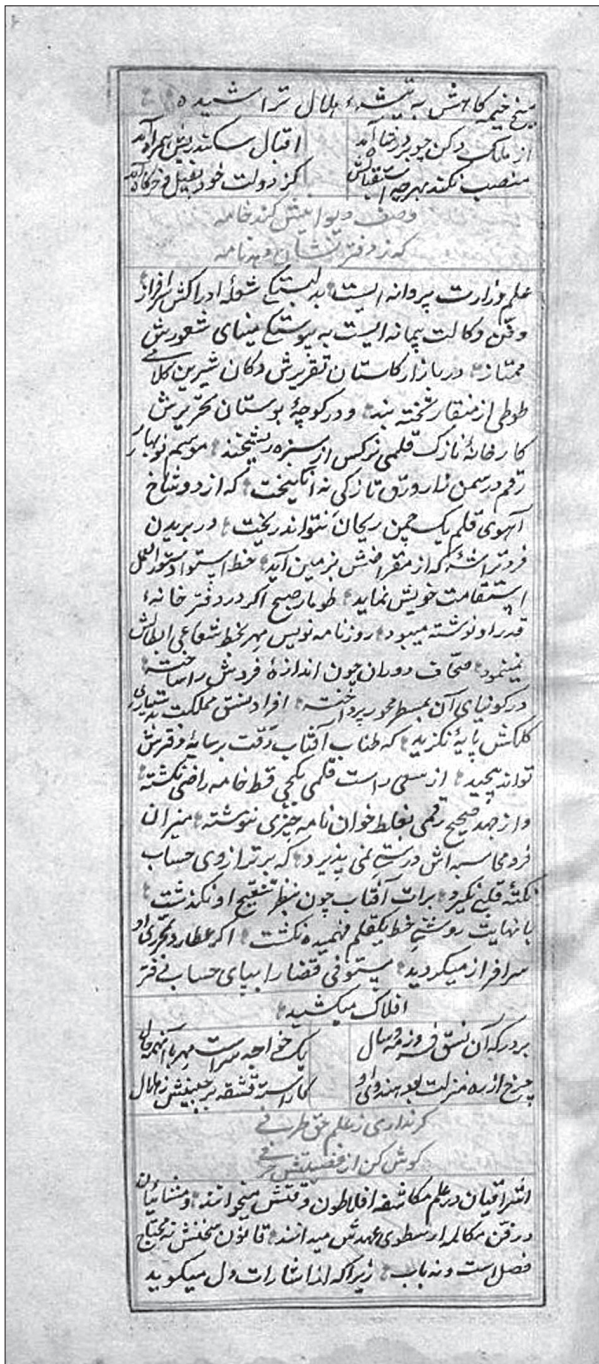 میخ خیمه کاهش به تیشهٔ هلال تراشیده
از ملک دکن چو در رسد اقبال سکندریش همراه آمد
منصب نکند بهر چه استقبالش کز دولت خود بفیل و خرگاه آمد
وصف دیوانیش کند خامه
که ز دفتر نشان دهد نامه
علم وزارت پروانه ایست بدلبستگی شعلهٔ ادراکش سرافراز
و فن وکالت پیمانه ایست به پیوستگی مینای شعورش
ممتاز در بازار کاستان تقریرش دکان شیرین کلامی
طوطی از منقار تخته بند و در کوچهٔ بوستان تحریرش
کارخانهٔ نازک قلمی نرکس از سبزه ریشخند موسم نوبهار
رقم در سمن زار ورق تازکی نه انکیخت که از دو شاخ
آهوی قلم یک چمن ریحان نتواند ریخت در بریدن
فرد تراشهٔ که از مقراضش بزمین آید خط استوا دستور العمل
استقامت خویش نماید طومار صبح اکر در دفتر خانهٔ
قدر او نوشته میبود روزنامه نویس مهر بخط شعاعی ابطالش
نمینمود صحاف دوران چون اندازهٔ فردش را ساخته
در کونیای آن بمسطر محور پرداخته افراد نسق مملکت بدستیاری
کلکش پایهٔ نکزید که طناب آفتاب دقت بر سایهٔ دفترش
تواند پیچید از سعی راست قلمی بکجی قط خامه راضی نکشته
و از جهد صحیح رقمی بغلط خوان نامه چیزی ننوشته میزان
فرد محاسبه اش درستی نمی پذیرد که بر ترازوی حساب
نکتهٔ قلبی نکیرد برات آفتاب چون بنظر تنقیح او نکذشت
با نهایت روشنی خط یکقلم فهمیده نکشت اکر عطارد بمحرری او
سرافراز میکردید مستوفی قضا را بپای حساب دفتر
افلاک میکشید
بر درکه آن نسق مه و سال یک خواجه سراست مهر با آنهمه
چرخ از ره منزلت بود هندوی او کاراسته قشقه بر جبینش ز هلال
کر نداری ز علم حق طرفی
کوش کن از فضیلتش حرفی
اشراقیان در علم مکاشفه افلاطون وقتش میخوانند و مشائیان
در فن مکالمه ارسطوی عهدش میدانند قانون سخنش نه محتاج
فصل است و نه باب زیرا که از اشارات دل میکوید